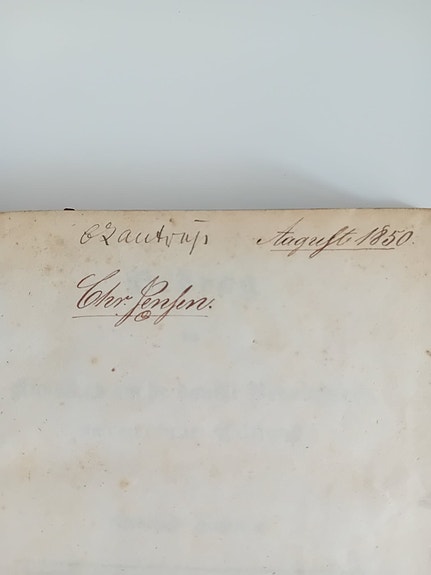 C Lautrup August 1850.
Chr. Jensen.